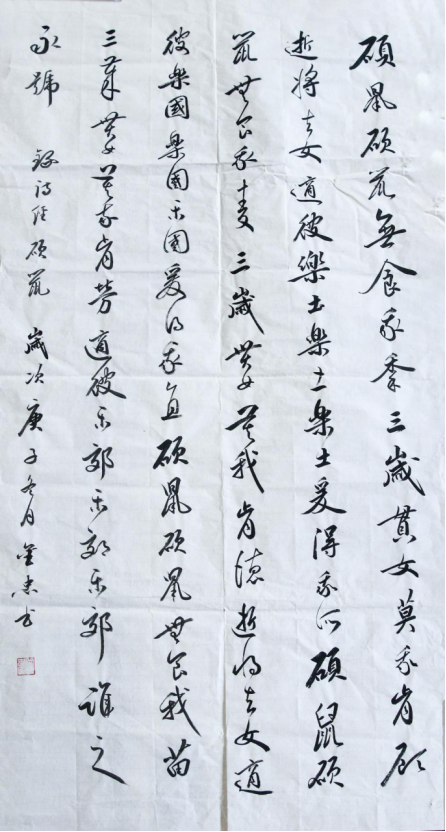 碩鼠碩鼠無食我黍三歲貫女莫我肯顧
逝將去女適彼樂土樂土樂土爰得我所碩鼠碩
鼠無食我麥三歲貫女莫我肯德逝將去女適
彼樂國樂國樂國爰得我直碩鼠碩鼠無食我苗
三歲貫女莫我肯勞適彼樂郊樂郊樂郊誰之
永號 錄詩經碩鼠 歲次庚子冬月书